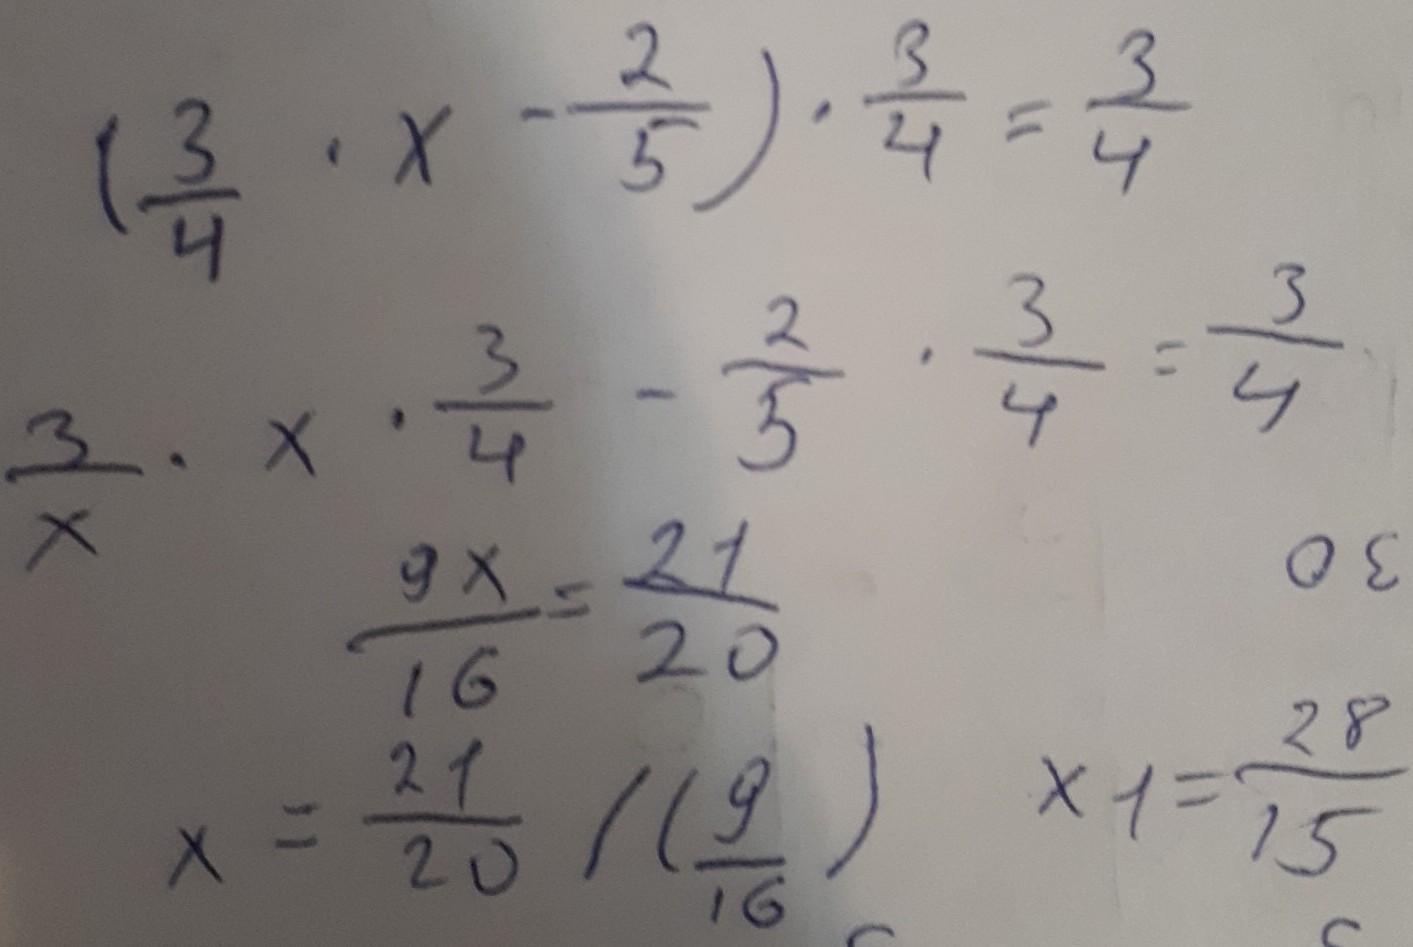 (3/4 · x - 2/5) · 3/4 = 3/4
3/x · x · 3/4 - 2/5 · 3/4 = 3/4
9x/16 = 21/20
30
x = 21/20 / (9/16)
x1 = 28/15